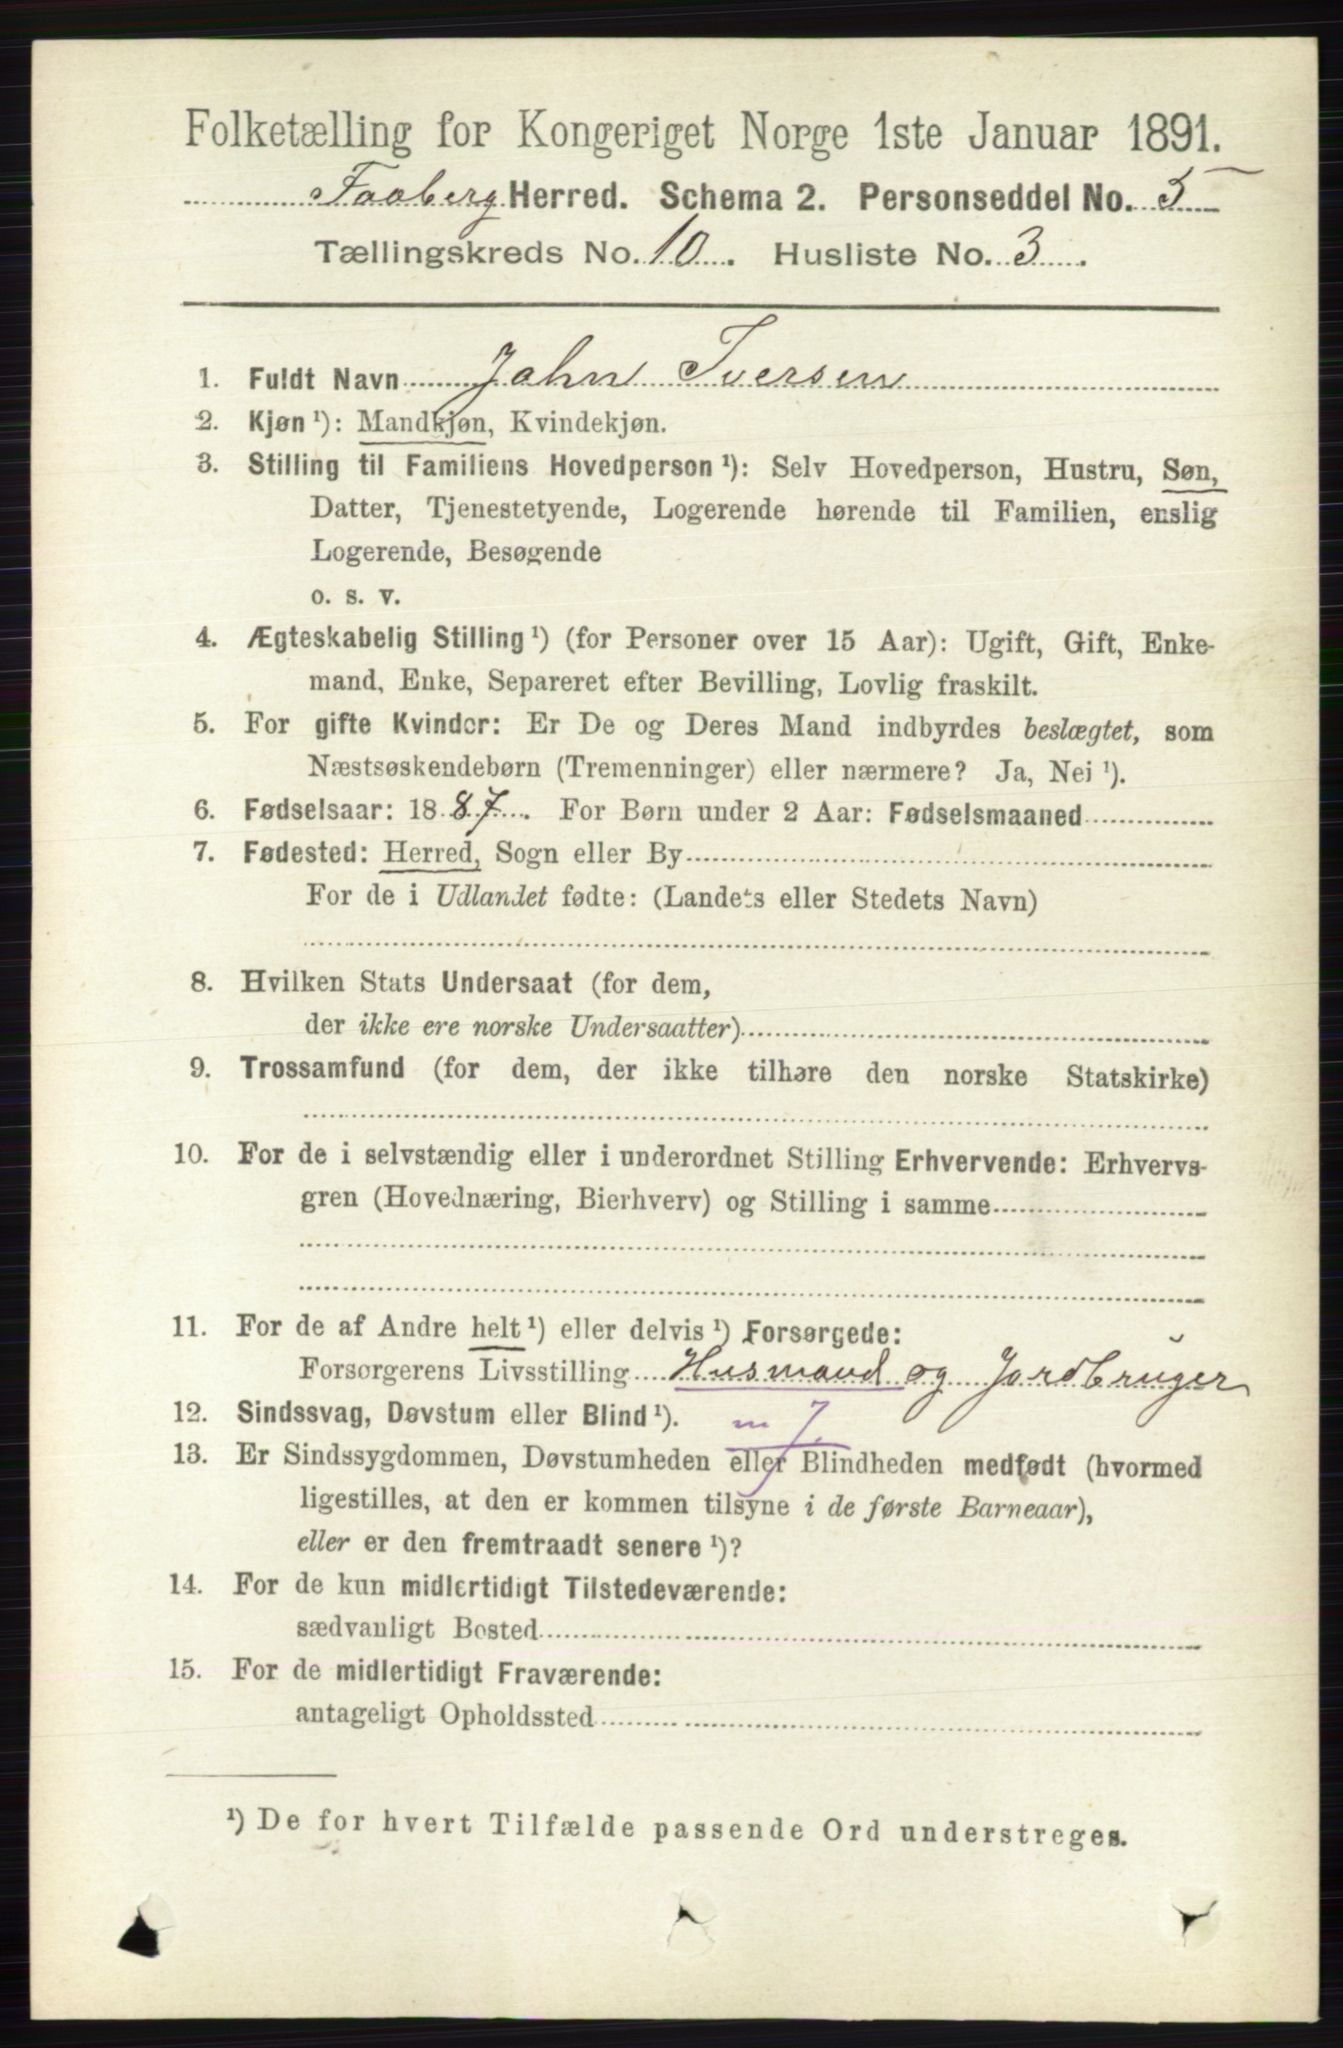 Folketælling for Kongeriget Norge 1ste Januar 1891.
Faaberg Herred. Schema 2. Personseddel No. 5
Tællingskreds No. 10. Husliste No. 3.
1. Fuldt Navn John Iversen
2. Kjøn ¹): Mandkjøn, Kvindekjøn.
3. Stilling til Familiens Hovedperson ¹): Selv Hovedperson, Hustru, Søn,
Datter, Tjenestetyende, Logerende hørende til Familien, enslig
Logerende, Besøgende
o. s. v.
4. Ægteskabelig Stilling ¹) (for Personer over 15 Aar): Ugift, Gift, Enke-
mand, Enke, Separeret efter Bevilling, Lovlig fraskilt.
5. For gifte Kvinder: Er De og Deres Mand indbyrdes beslægtet, som
Næstsøskendebørn (Tremenninger) eller nærmere? Ja, Nei ¹).
6. Fødselsaar: 1887. For Børn under 2 Aar: Fødselsmaaned
7. Fødested: Herred, Sogn eller By
For de i Udlandet fødte: (Landets eller Stedets Navn)
8. Hvilken Stats Undersaat (for dem,
der ikke ere norske Undersaatter)
9. Trossamfund (for dem, der ikke tilhøre den norske Statskirke)
10. For de i selvstændig eller i underordnet Stilling Erhvervende: Erhvervs-
gren (Hovednæring, Bierhverv) og Stilling i samme
11. For de af Andre helt ¹) eller delvis ¹) Forsørgede:
Forsørgerens Livsstilling Husmand og Jordbruger
12. Sindssvag, Døvstum eller Blind ¹). m 7.
13. Er Sindssygdommen, Døvstumheden eller Blindheden medfødt (hvormed
ligestilles, at den er kommen tilsyne i de første Barneaar),
eller er den fremtraadt senere ¹)?
14. For de kun midlertidigt Tilstedeværende:
sædvanligt Bosted
15. For de midlertidigt Fraværende:
antageligt Opholdssted
¹) De for hvert Tilfælde passende Ord understreges.